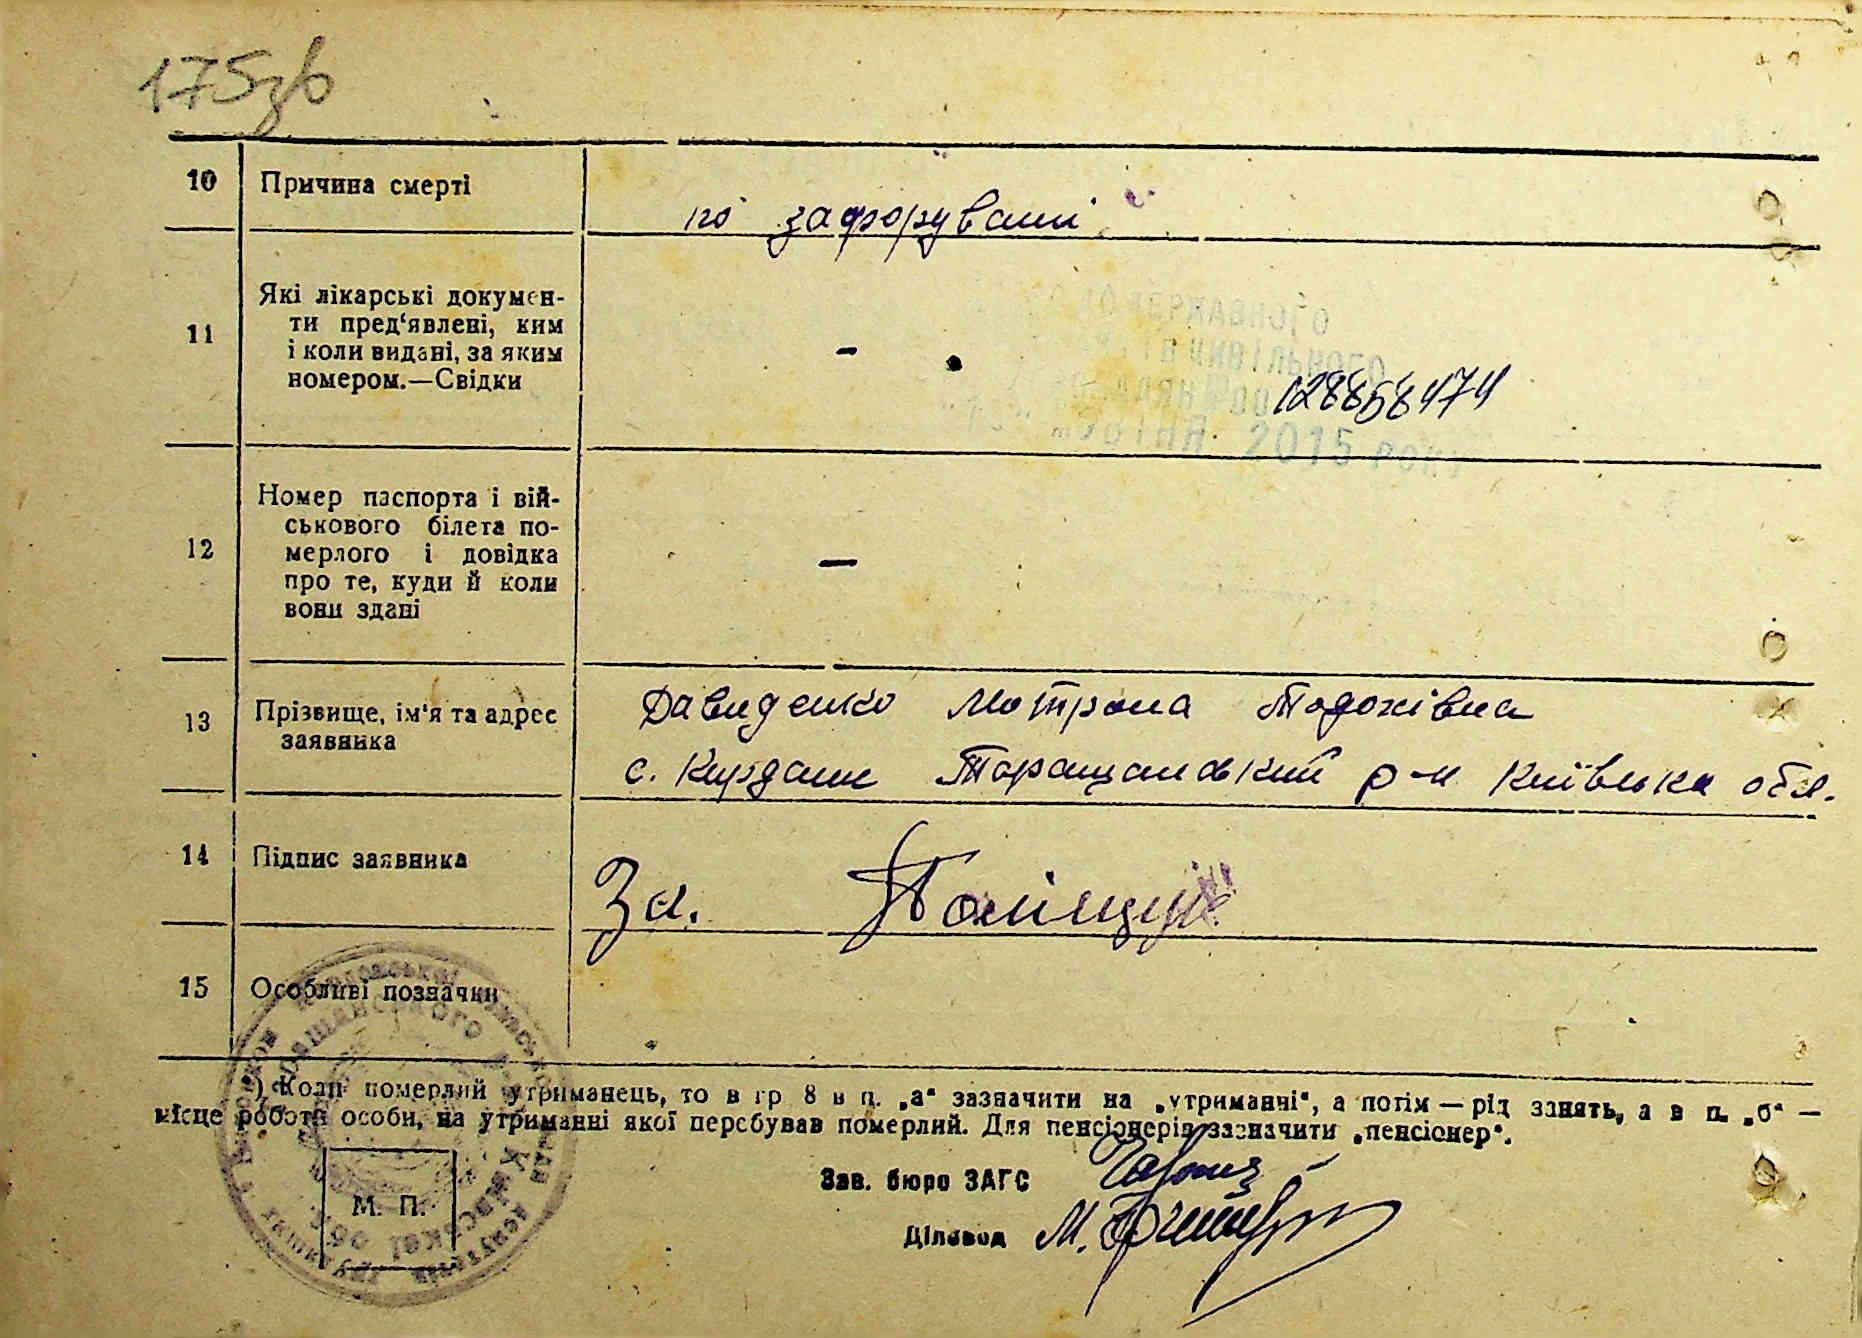 175зв
10 Причина смерті
по зафорувані
11 Які лікарські докумен-
ти пред‘явлені, ким
і коли видані, за яким
номером.—Свідки
-
12885847
2015 року
12 Номер паспорта і вій-
ськового білета по-
мерлого і довідка
про те, куди й коли
вони здані
—
13 Прізвище, ім‘я та адрес
заявника
Давиденко Мотрона Тодохівна
с. Кирдани Таращанский р-н Київська обл.
14 Підпис заявника
За. Поліщук
15 Особливі позначки
) Коли померлий утриманець, то в гр 8 в п. „а“ зазначити на „утриманні“, а потім — рід занять, а в п. „б“ —
місце роботи особи, на утриманні якої перебував померлий. Для пенсіонерів зазначити „пенсіонер“.
Зав. бюро ЗАГС
М. П.
Діловод М.